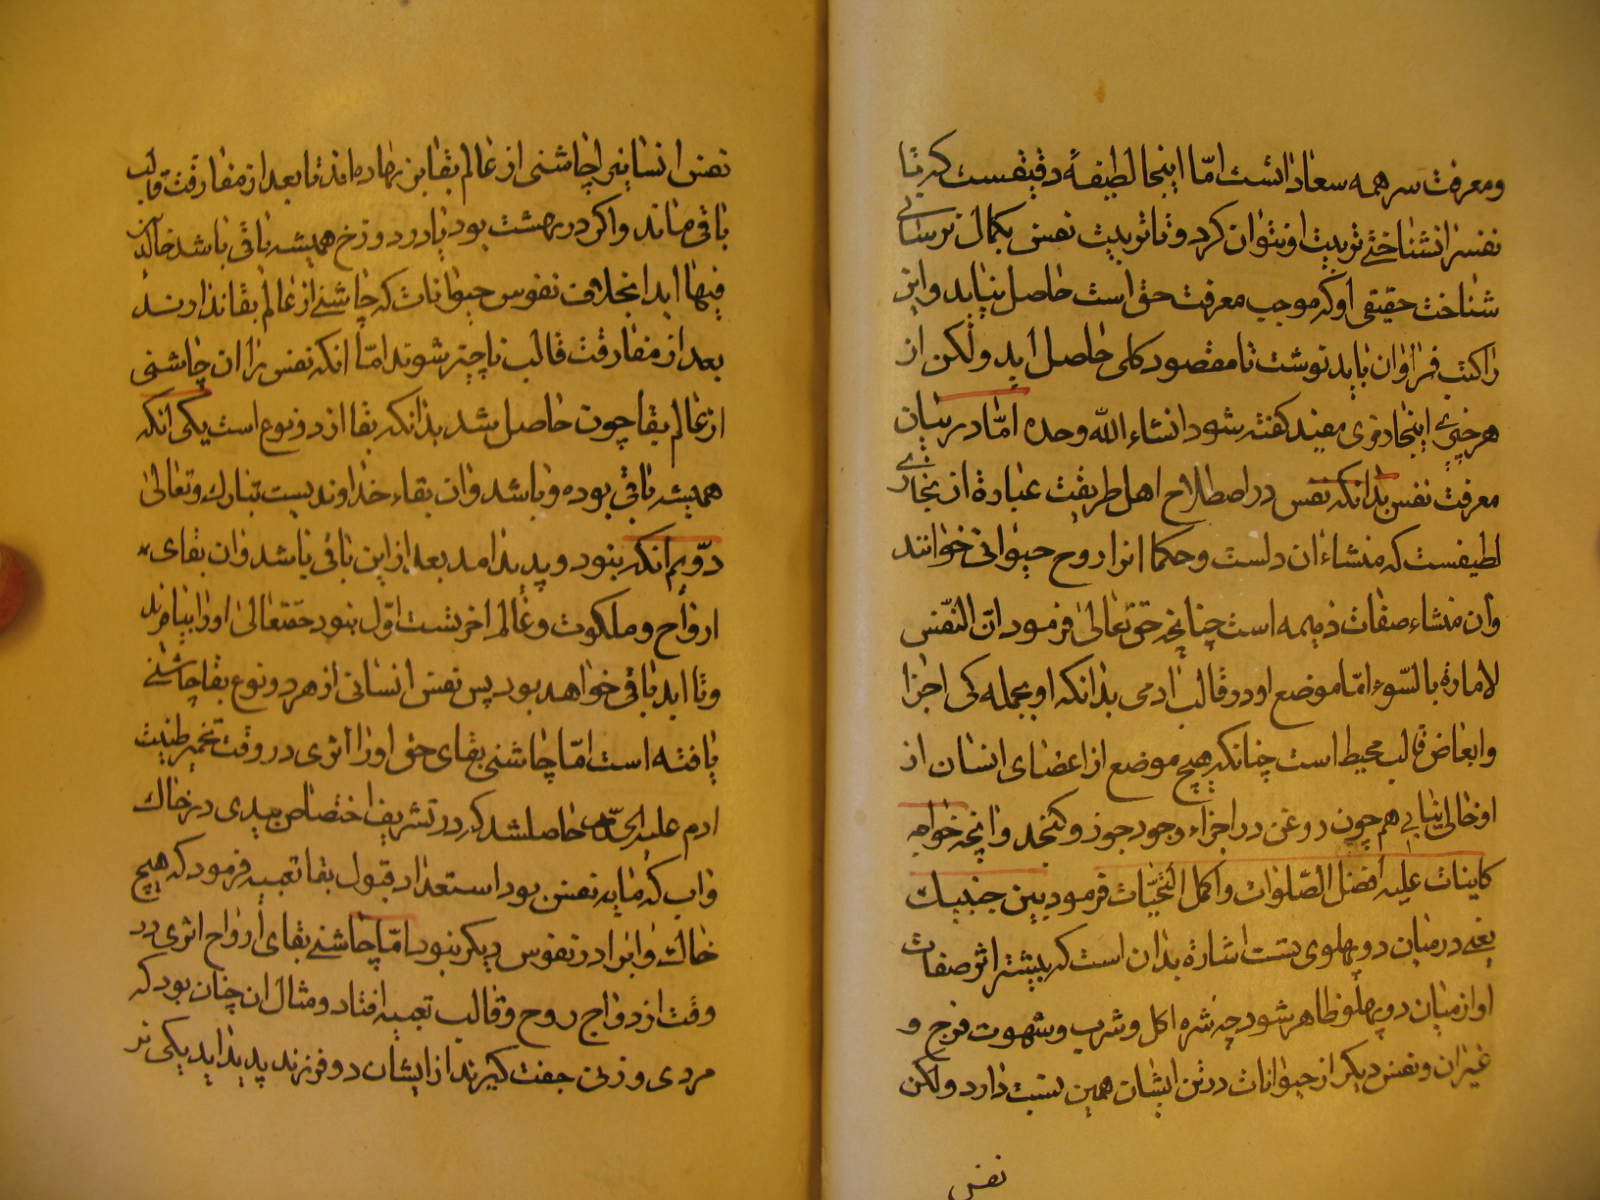 ومعرفت سر همه سعاداتست امّا اینجا لطیفهٔ دقیقست که تا
نفس را نشناختی تربیت او نتوان کرد و تا تربیت نفس بکمال نرسانی
شناخت حقیقی او که موجب معرفت حق است حاصل نیاید و این
را کتب فراوان باید نوشت تا مقصود کلی حاصل اید ولکن از
هر چیزی اینجا رمزی مفید کفته شود انشاء الله وحده امّا در بیان
معرفت نفس بدانکه نفس در اصطلاح اهل طریقت عبارة از بخاری
لطیفست که منشاء ان دلست و حکما انرا روح حیوانی خوانند
وان منشاء صفات ذمیمه است چنانچه حق تعالی فرمود انّ النّفس
لامارة بالسّوء امّا موضع او در قالب ادمی بدانکه او بجمله کی اجزا
وابعاض قالب محیط است چنانکه هیچ موضع از اعضای انسان از
او خالی نیابی هم چون روغن در اجزاء وجود جوز و کنجد وانچه خواجه
کاینات علیه افضل الصّلوات واکمل التّحیّات فرمود بین جنبیك
یعنی در میان دو پهلوی تست اشارة بدان است که بیشتر اثر صفات
او از میان دو پهلو ظاهر شود چه شره اکل وشرب وشهوت فرج و
غیران ونفس دیکر از حیوانات در تن ایشان همین نسبت دارد ولکن
نفس
نفس انسانی را چاشنی از عالم بقا بر نهاده اند تا بعد از مفارقت قالب
باقی ماند واکر در بهشت بود یا در دوزخ همیشه باقی باشد خالدین
فیها ابدا بخلاف نفوس حیوانات که چاشنی از عالم بقا ندارند
بعد از مفارقت قالب ناچیز شوند امّا انکه نفس را ان چاشنی
از عالم بقا چون حاصل شد بدانکه بقا از دو نوع است یکی انکه
همیشه باقی بوده و باشد وان بقاء خداوندیست تبارك وتعالی
دوّیم انکه نبود و پدید امد بعد از این باقی باشد وان بقای
ارواح و ملکوت و عالم اخرتست اوّل نبود حقتعالی او را بیافرید
وتا ابد باقی خواهد بود پس نفس انسانی از هر دو نوع بقا چاشنی
یافته است امّا چاشنی بقای حق او را اثری در وقت تخمیر طینت
ادم علیه حاصلشد که در تشریف اختصاص بیدی در خاك
واب که مایه نفس بود استعداد قبول بقا تعبیه فرمود که هیچ
خاك و اب را در نفوس دیکر نبود امّا چاشنی بقای ارواح اثری در
وقت ازدواج روح و قالب تعبیه افتاد و مثال ان چنان بود که
مردی و زنی جفت کیرند از ایشان دو فرزند پدید اید یکی نر